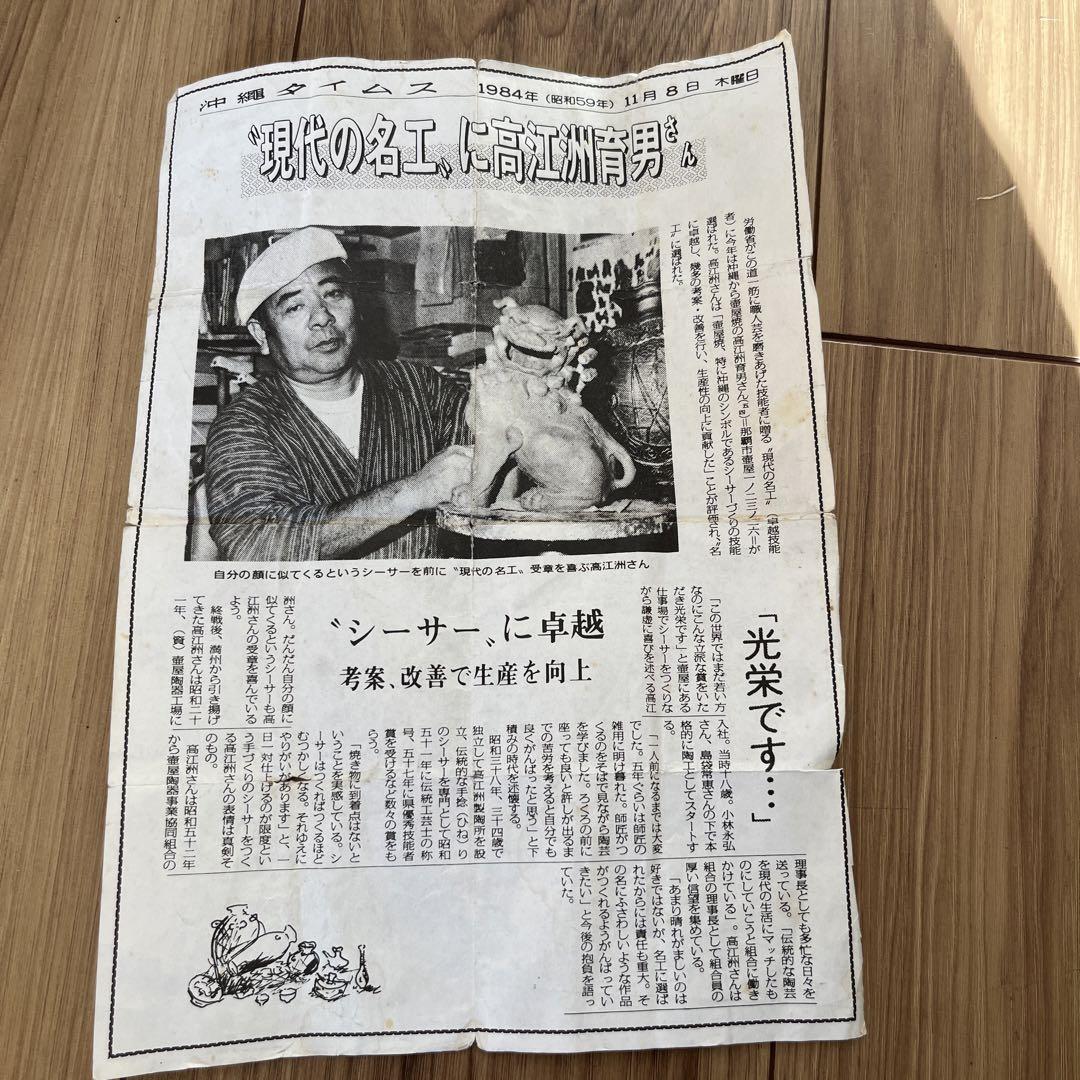 沖縄タイムス 1984年(昭和59年)11月8日 木曜日
〝現代の名工〟に高江洲育男さん
労働省がこの道一筋に職人芸を磨きあげた技能者に贈る〝現代の名工〟(卓越技能
者)に今年は沖縄から壺屋焼の高江洲育男さん(五四)=那覇市壺屋一ノ二三ノ二六=が
選ばれた。高江洲さんは「壺屋焼、特に沖縄のシンボルであるシーサーづくりの技能
に卓越し、幾多の考案・改善を行い、生産性の向上に貢献した」ことが評価され、〝名
工〟に選ばれた。
自分の顔に似てくるというシーサーを前に〝現代の名工〟受章を喜ぶ高江洲さん
「光栄です…」
〝シーサー〟に卓越
考案、改善で生産を向上
「この世界ではまだ若い方
なのにこんな立派な賞をいた
だき光栄です」と壺屋にある
仕事場でシーサーをつくりな
がら謙虚に喜びを述べる高江
洲さん。だんだん自分の顔に
似てくるというシーサーも高
江洲さんの受章を喜んでいる
よう。
終戦後、満州から引き揚げ
てきた高江洲さんは昭和二十
一年、(資)壺屋陶器工場に
入社。当時十八歳。小林永弘
さん、島袋常恵さんの下で本
格的に陶工としてスタートす
る。
「一人前になるまでは大変
でした。五年ぐらいは師匠の
雑用に明け暮れた。師匠がつ
くるのをそばで見ながら陶芸
を学びました。ろくろの前に
座っても良いと許しが出るま
での苦労を考えると自分でも
良くがんばったと思う」と下
積みの時代を述懐する。
昭和三十八年、三十四歳で
独立して高江洲製陶所を設
立、伝統的な手捻(ひね)り
のシーサーを専門として昭和
五十一年に伝統工芸士の称
号、五十七年に県優秀技能者
賞を受けるなど数々の賞をも
らう。
「焼き物に到着点はないと
いうことを実感している。シ
ーサーはつくればつくるほど
むつかしくなる。それゆえに
やりがいがあります」と、一
日一対仕上げるのが限度とい
う手づくりのシーサーをつく
る高江洲さんの表情は真剣そ
のもの。
高江洲さんは昭和五十二年
から壺屋陶器事業協同組合の
理事長としても多忙な日々を
送っている。「伝統的な陶芸
を現代の生活にマッチしたも
のにしていこうと組合に働き
かけている」。高江洲さんは
組合の理事長として組合員の
厚い信望を集めている。
「あまり晴れがましいのは
好きではないが、名工に選ば
れたからには責任も重大。そ
の名にふさわしいような作品
がつくれるようがんばってい
きたい」と今後の抱負を語っ
ていた。